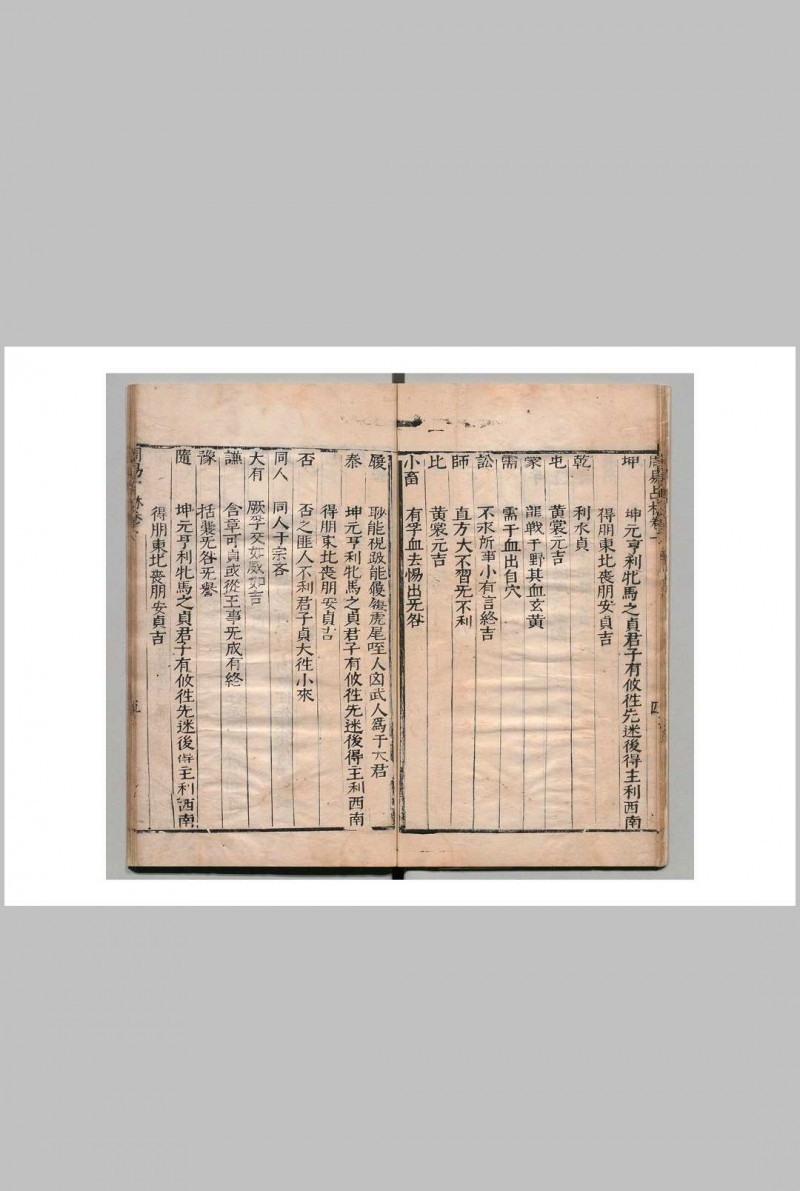 坤　坤元亨利牝馬之貞君子有攸徃先迷後得主利西南
得朋東北喪朋安貞吉
乾　利永貞
屯　黄裳元吉
蒙　龍戰于野其血玄黄
需　需于血出自穴
訟　不永所事小有言終吉
師　直方大不習旡不利
比　黄裳元吉
小畜　有孚血去惕出旡咎
履　眇能視跛能履履虎尾咥人凶武人爲于大君
泰　坤元亨利牝馬之貞君子有攸徃先迷後得主利西南
得朋東北喪朋安貞吉
否　否之匪人不利君子貞大徃小來
同人　同人于宗吝
大有　厥孚交如威如吉
謙　含章可貞或從王事旡成有終
豫　括囊旡咎旡譽
隨　坤元亨利牝馬之貞君子有攸徃先迷後得主利西南
得朋東北喪朋安貞吉